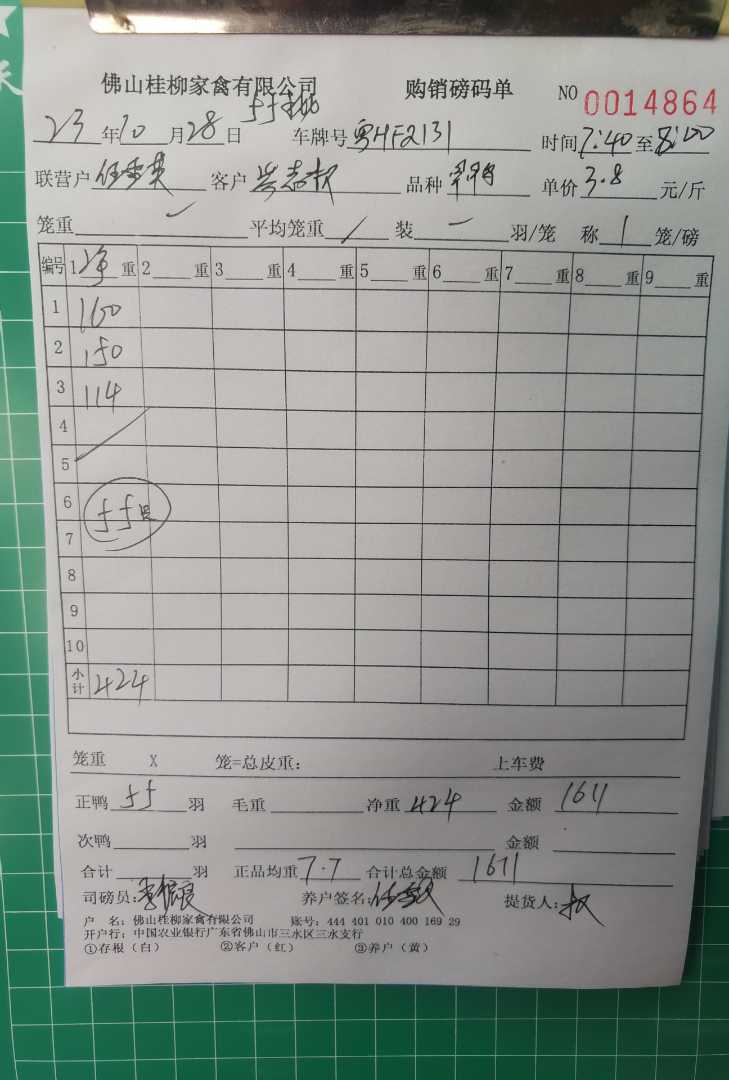 佛山桂柳家禽有限公司 购销磅码单 NO 0014864
23年10月28日 车牌号 粤HF2131 时间7:40至8:00
联营户 客户 品种 单价3.8元/斤
笼重 平均笼重 装 羽/笼 称1笼/磅
编号 1净重 2重 3重 4重 5重 6重 7重 8重 9重
1 160
2 150
3 114
4
5
6
7
8
9
10
小计 424
笼重 X 笼=总皮重: 上车费
正鸭55羽 毛重 净重424 金额1611
次鸭 羽 金额
合计 羽 正品均重7.7 合计总金额1611
司磅员: 养户签名: 提货人:
户 名: 佛山桂柳家禽有限公司 账号: 444 401 010 400 169 29
开户行: 中国农业银行广东省佛山市三水区三水支行
①存根(白) ②客户(红) ③养户(黄)